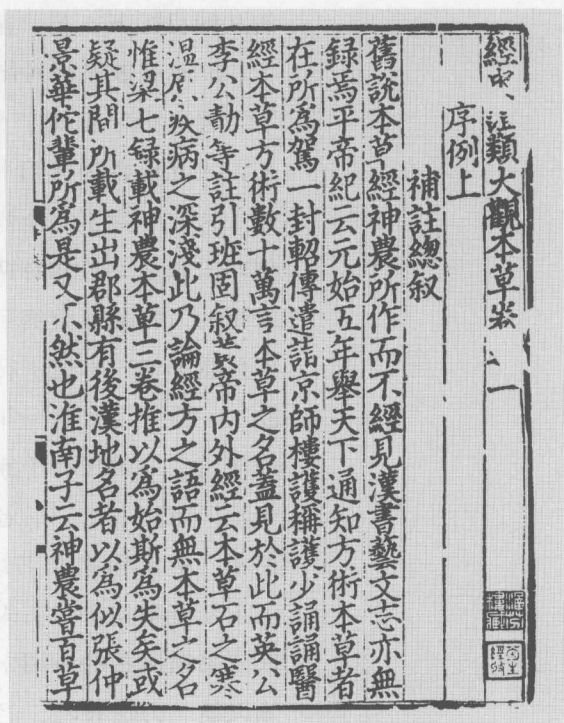 經史類大觀本草卷一
序例上
補註總叙
舊說本草經神農所作而不經見漢書藝文志亦無
録焉平帝紀云元始五年舉天下通知方術本草者
在所爲駕一封軺傳遣詣京師樓護稱護少誦誦醫
經本草方術數十萬言本草之名蓋見於此而英公
李公勣等註引班固叙黃帝內外經云本草石之寒
温原疾病之深淺此乃論經方之語而無本草之名
惟梁七録載神農本草三卷推以爲始斯爲失矣或
疑其間所載生出郡縣有後漢地名者以爲似張仲
景華佗輩所爲是又不然也淮南子云神農嘗百草